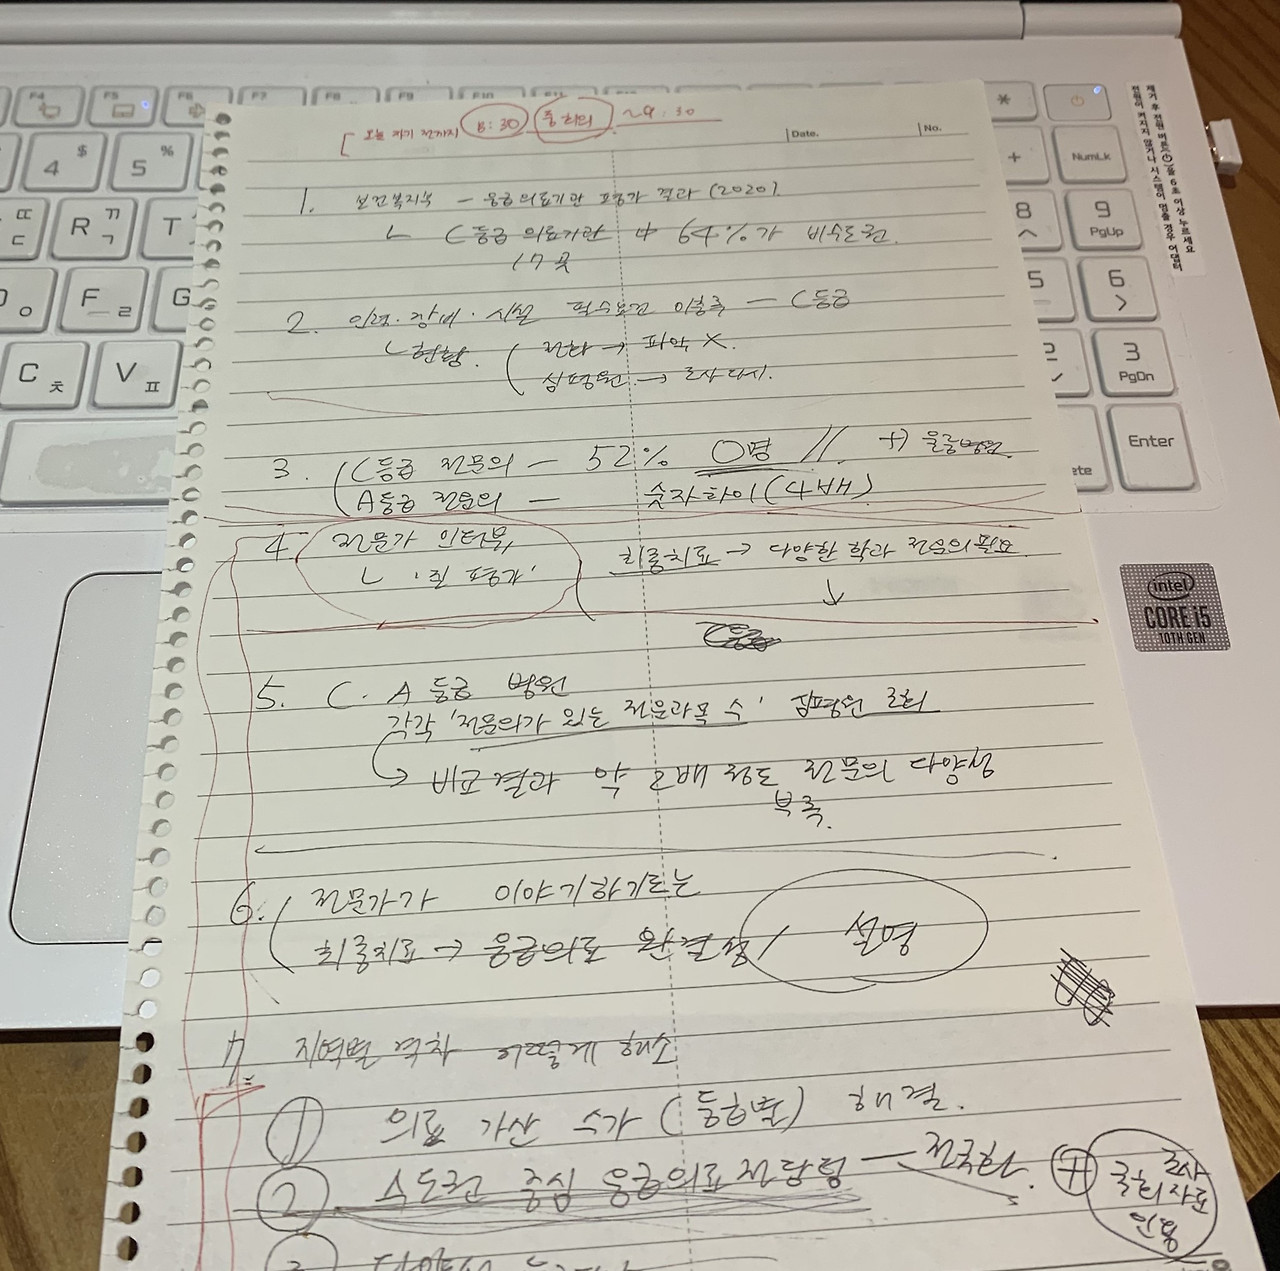 F4 F5 F6 F7 F8 F9 F10 F11
제거 후 전원 버튼(⏻)을 6초 이상 누르세요
전원이 켜지지 않거나 시스템이 멈출 경우 어댑터
4 $
5 %
* + NumLk
R ㄲ ㄱ
T
8
9 PgUp
F ㄹ
G
5
6
C ㅊ
V ㅍ
2
3 PgDn
Enter
intel
CORE i5
10TH GEN
오늘 저녁 전까지 8:30 줌 회의 ~9:30
Date. No.
1. 보건복지부 - 응급의료기관 평가 결과 (2020)
ㄴ C등급 의료기관 中 64%가 비수도권
17곳
2. 인력·장비·시설 필수요건 미충족 - C등급
ㄴ현황. 전화 → 파악 X.
심평원 → 조사 다시.
3. C등급 전문의 - 52% 0명 // +) 울릉병원
A등급 전문의 - 숫자차이(4배)
4. 전문가 인터뷰 최종치료 → 다양한 학과 전문의 필요
ㄴ '질 평가'
5. C. A 등급 병원
각각 '전문의가 있는 전문과목 수' 심평원 조회
→ 비교결과 약 2배 정도 전문의 다양성
부족.
6. 전문가가 이야기하기로는
최종치료 → 응급의료 완결성 / 설명
7. 지역별 격차
① 의료 가산 수가 (등급별) 해결.
② 수도권 중심 응급의료전담팀 - 전국화. + 조사 국회자료 인용
③